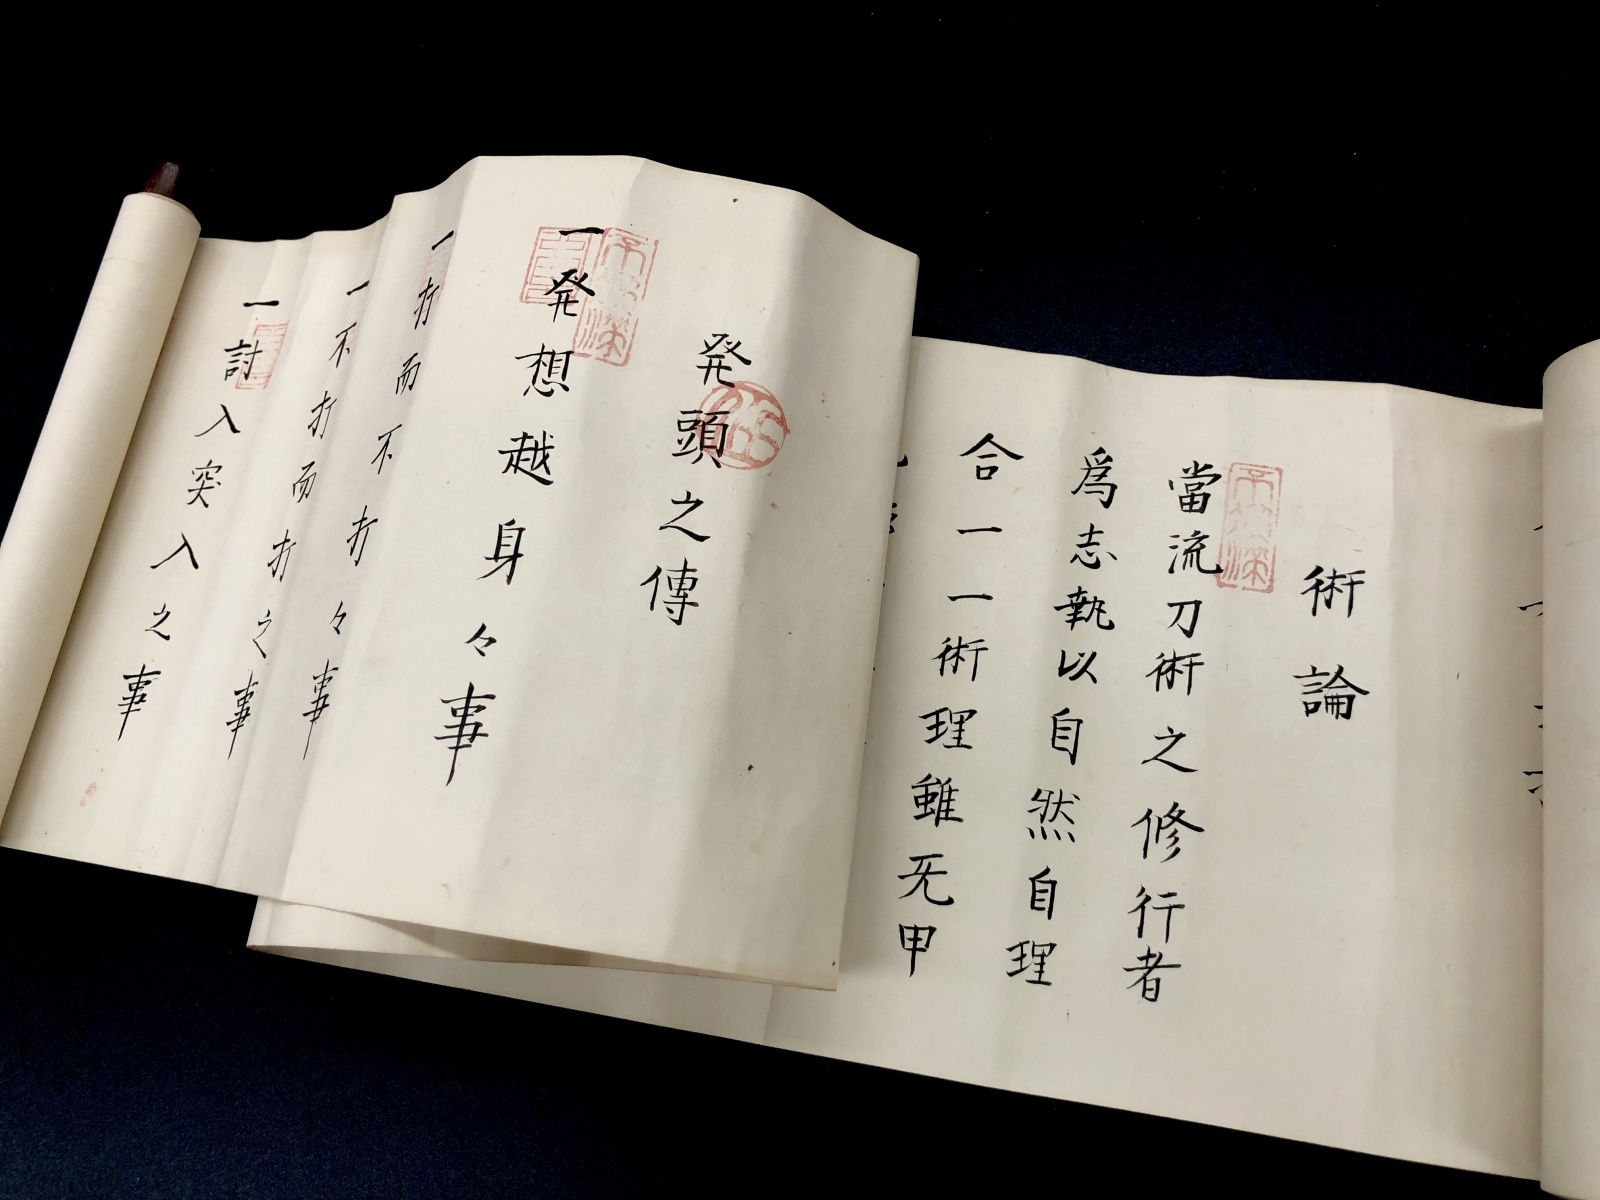 術論
當流刀術之修行者
爲志執以自然自理
合一一術理雖旡甲
発頭之傳
一発想越身々事
一打而不打々事
一不打而打之事
一討入突入之事